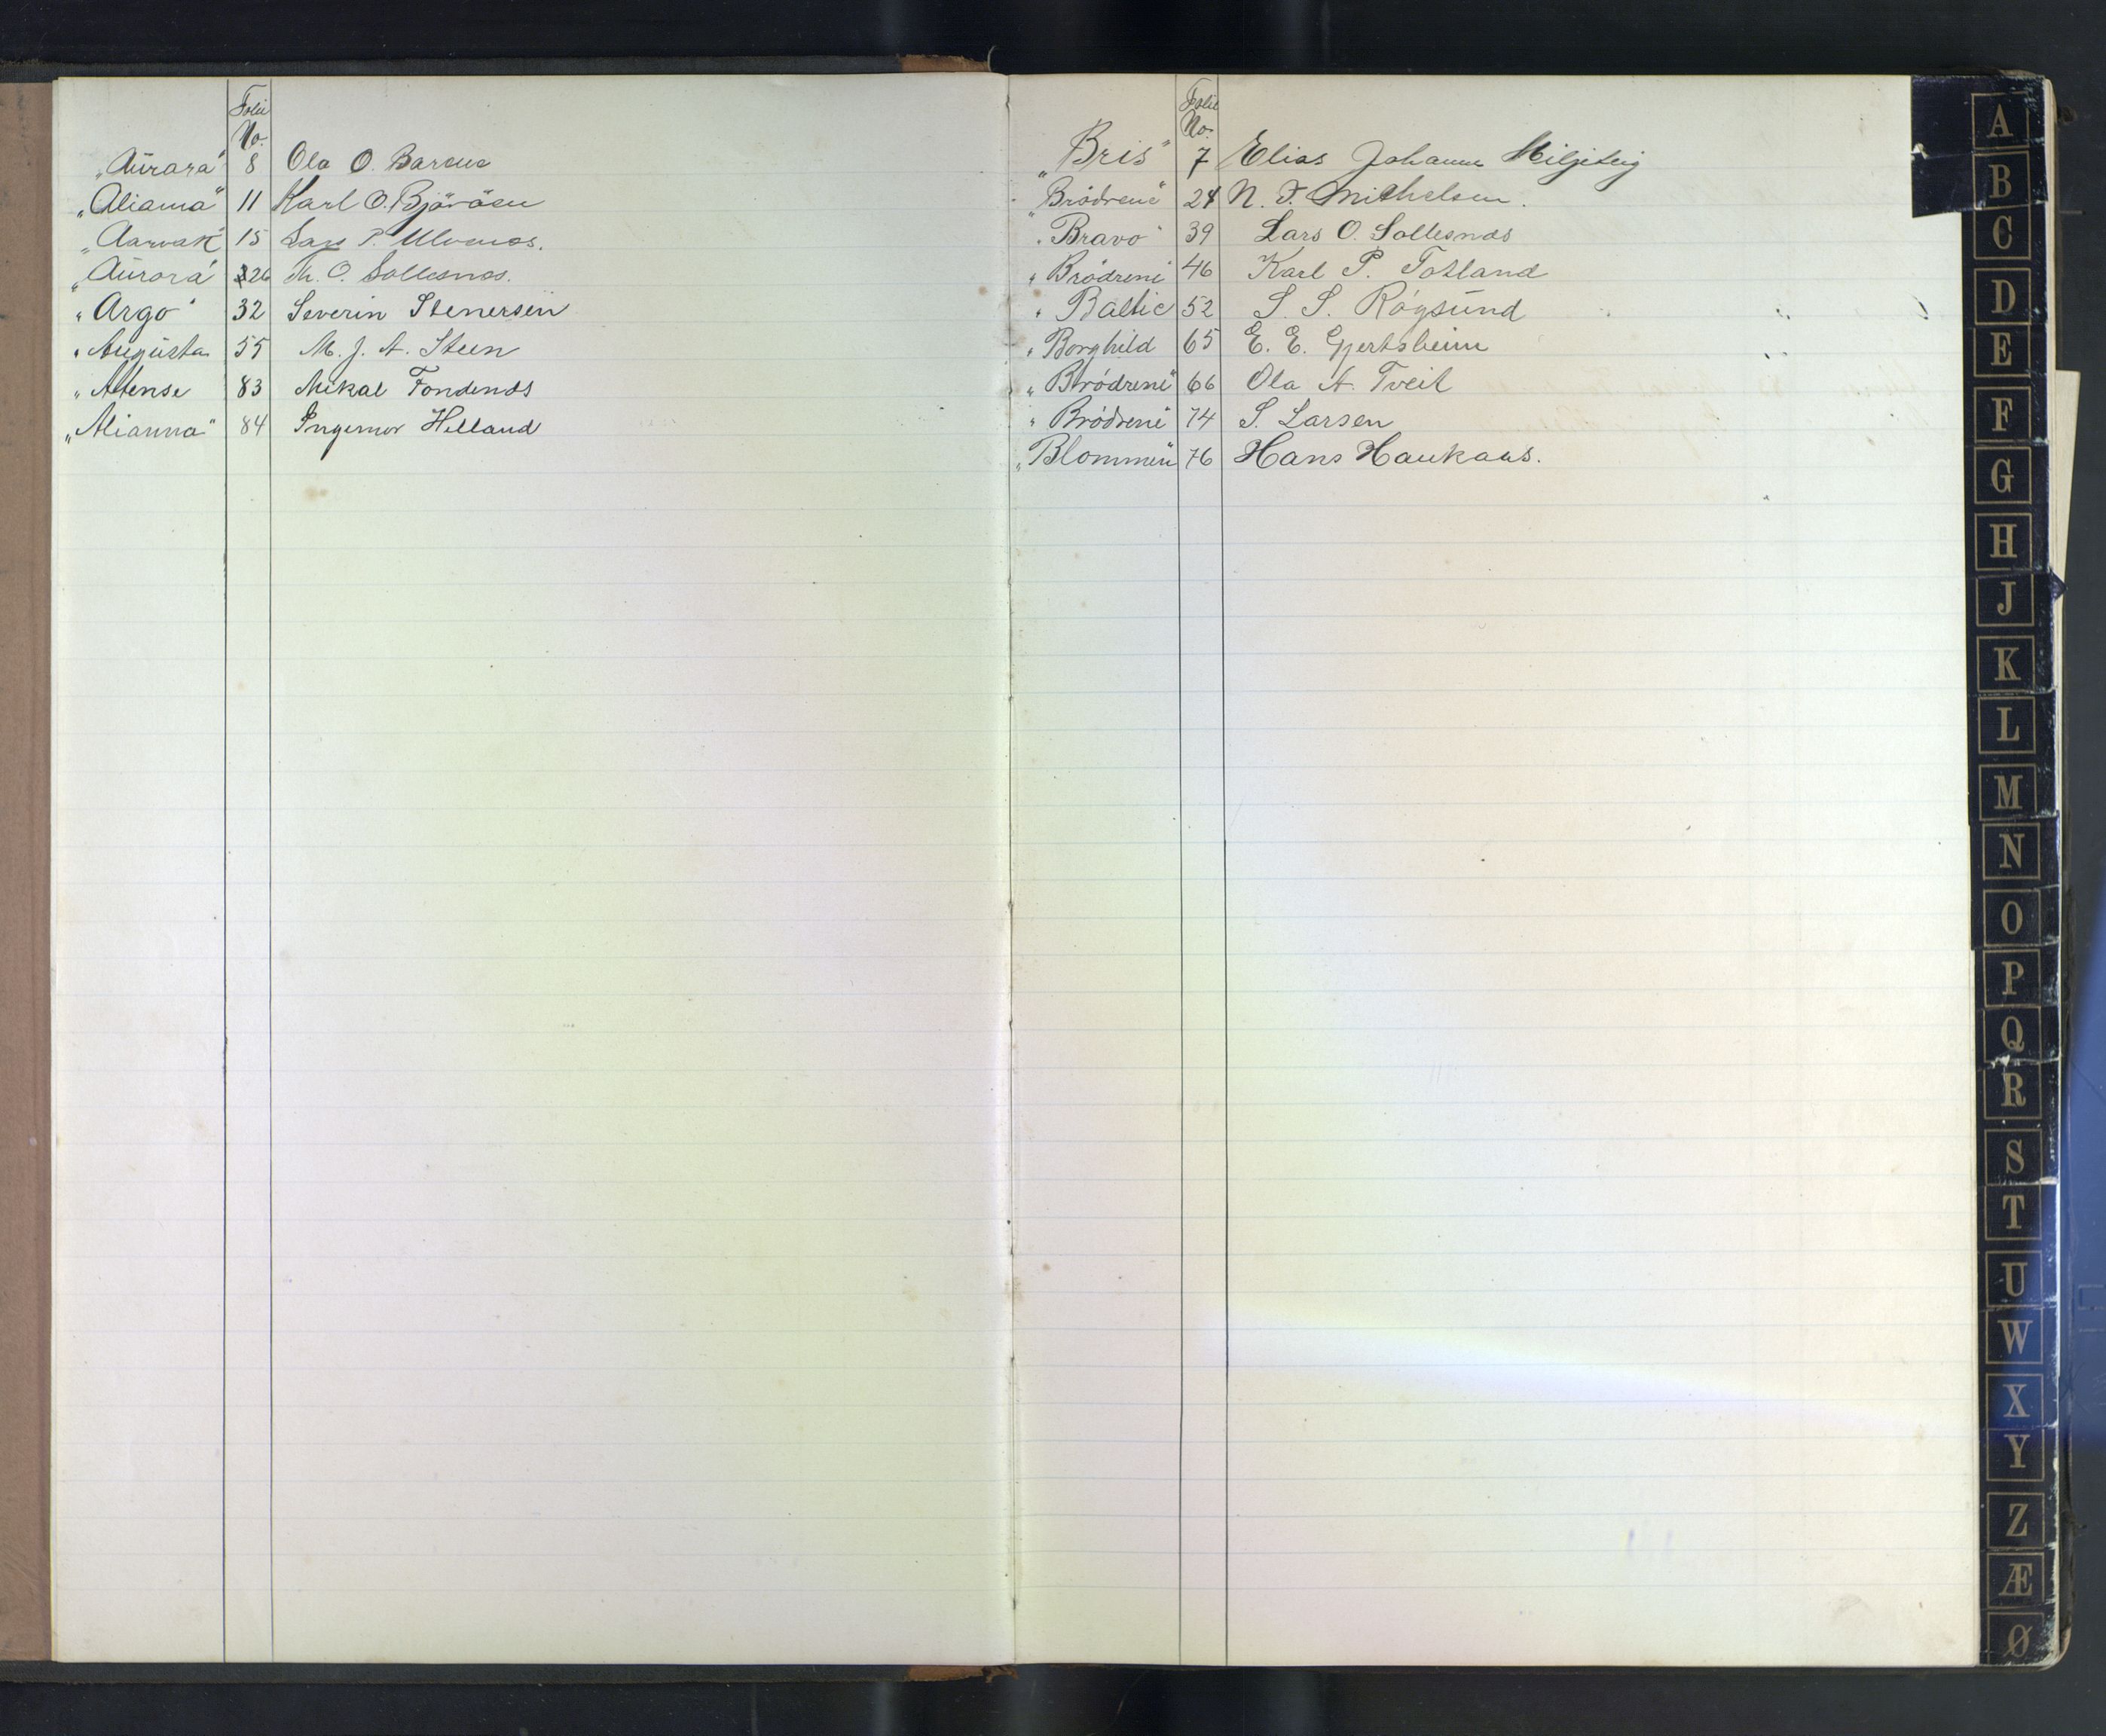 Folio
No.
"Aurora" 8 Ola O.
"Alianna" 11 Karl O. Bjøråen
"Aarvak" 15 Lars P. Ulvenes.
"Aurora" 26 Th. O. Sollesnes.
"Argo" 32 Severin Stenersen
"Augusta 55 M. J. A. Steen
83 Mikal Fondenes
"Alianna" 84 Ingemor Helland
Folio
No.
"Bris" 7 Elias Johannes Miljeteig
"Brødrene" 24 N. J. Mithelsen.
"Bravo" 39 Lars O. Sollesnes
"Brødrene" 46 Karl P. Totland
"Baltic 52 S. S. Røgsund
"Borghild 65 E. E. Gjertsheim
"Brødrene" 66 Ola A. Tveit
"Brødrene" 74 S. Larsen
"Blommen" 76 Hans Haukaas.
A
B
C
D
E
F
G
H
J
K
L
M
N
O
P
Q
R
S
T
U
W
X
Y
Z
Æ
Ø